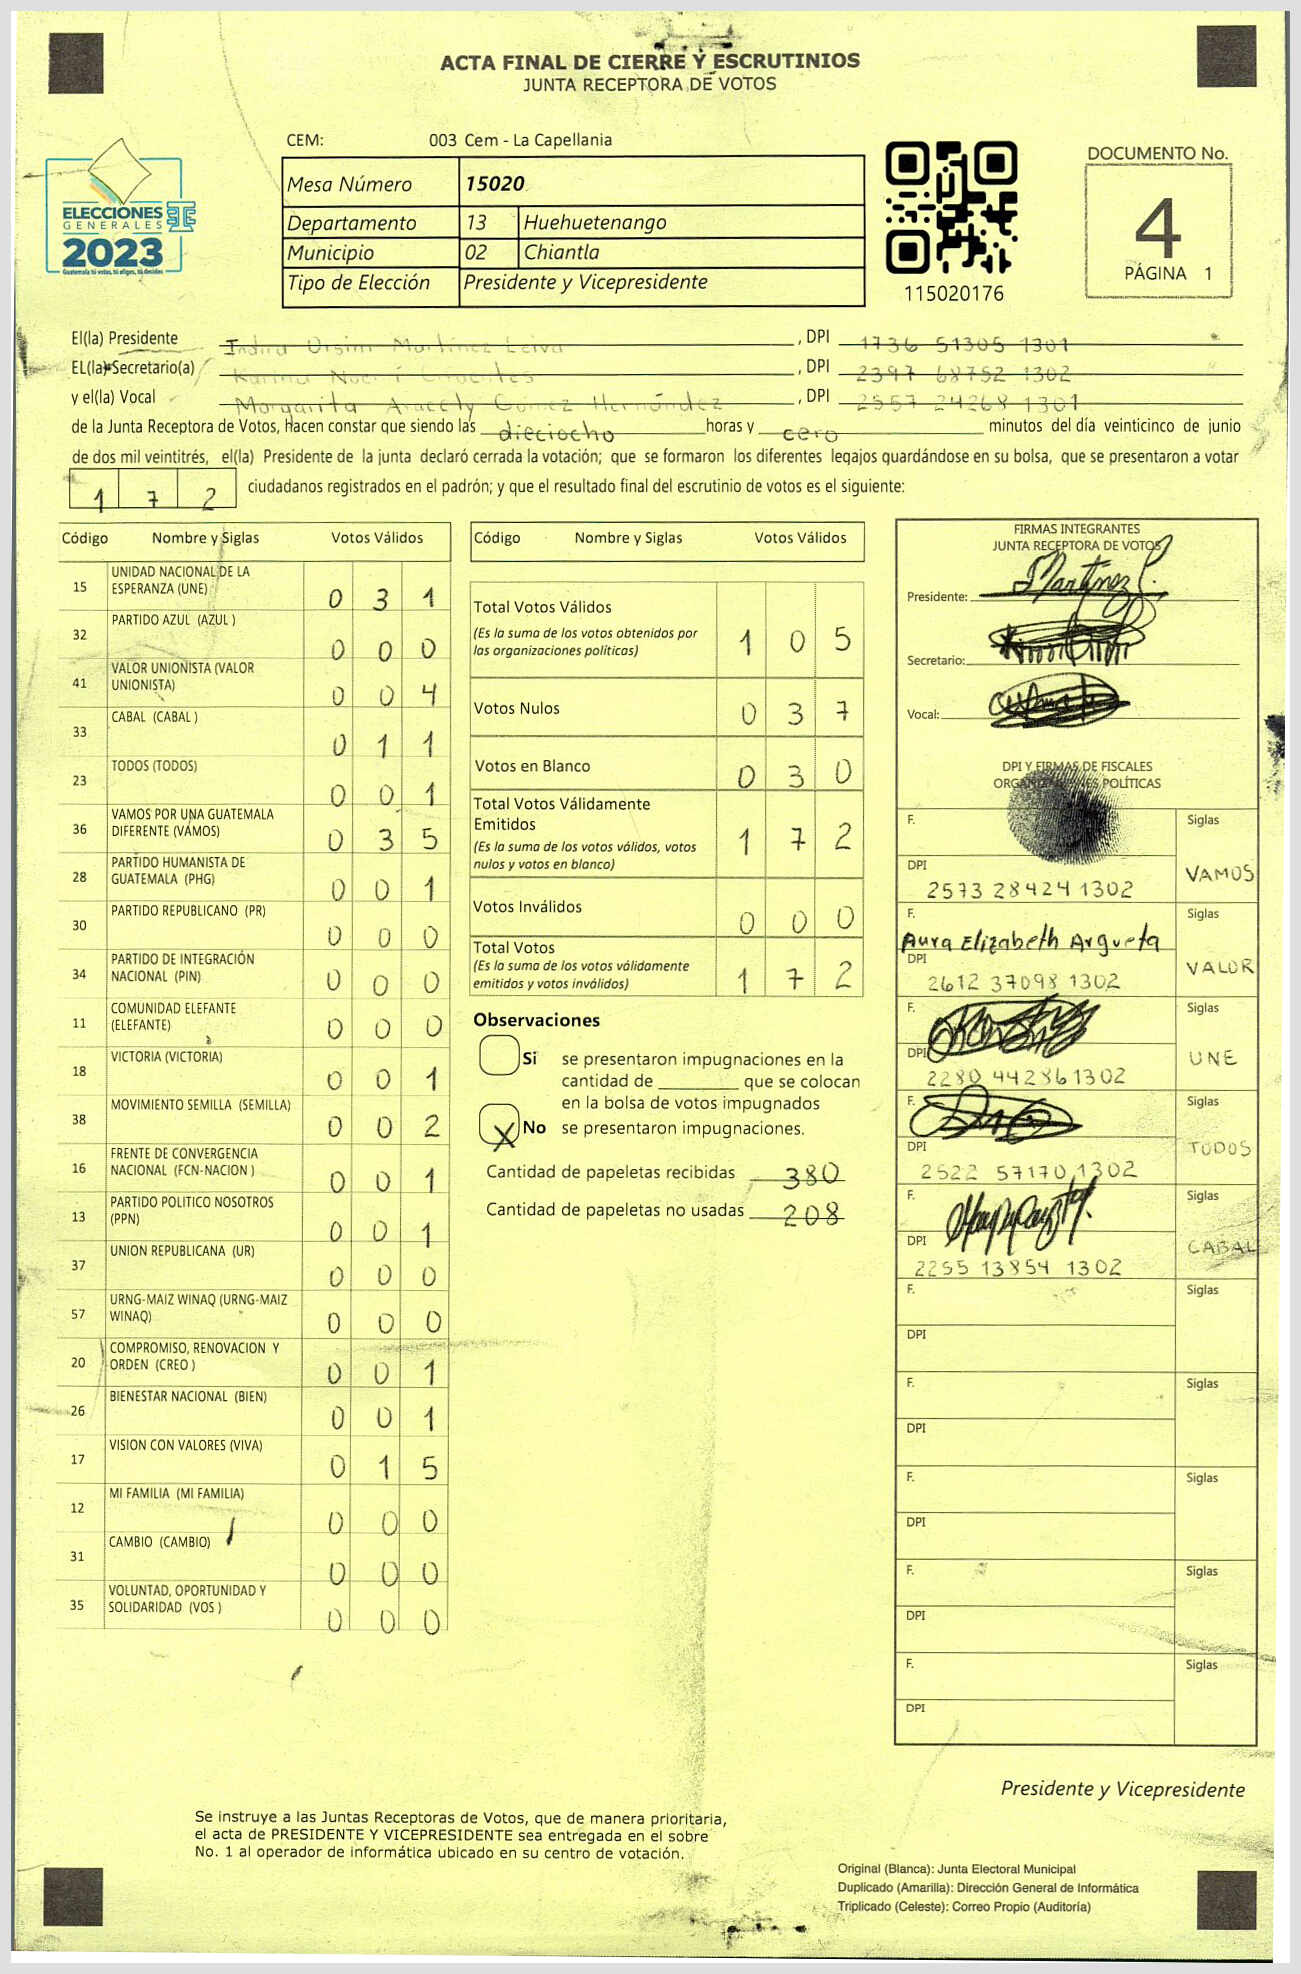 ACTA FINAL DE CIERRE Y ESCRUTINIOS
JUNTA RECEPTORA DE VOTOS
CEM: 003 Cem - La Capellania
ELECCIONES
GENERALES
2023
Guatemala tú votas, tú eliges, tú decides
Mesa Número 15020
Departamento 13 Huehuetenango
Municipio 02 Chiantla
Tipo de Elección Presidente y Vicepresidente
115020176
DOCUMENTO No.
4
PÁGINA 1
El(la) Presidente Indira Martínez Leiva, DPI 1736 51305 1301
EL(la) Secretario(a) Karina Noemí Cifuentes, DPI 2397 68752 1302
y el(la) Vocal Margarita Aracely Gómez Hernández, DPI 2557 24268 1301
de la Junta Receptora de Votos, Hacen constar que siendo las dieciocho horas y cero minutos del día veinticinco de junio
de dos mil veintitrés, el(la) Presidente de la junta declaró cerrada la votación; que se formaron los diferentes legajos quardándose en su bolsa, que se presentaron a votar
1 7 2 ciudadanos registrados en el padrón; y que el resultado final del escrutinio de votos es el siguiente:
Código Nombre y Siglas Votos Válidos
15 UNIDAD NACIONAL DE LA ESPERANZA (UNE) 0 3 1
32 PARTIDO AZUL (AZUL ) 0 0 0
41 VALOR UNIONISTA (VALOR UNIONISTA) 0 0 4
33 CABAL (CABAL ) 0 1 1
23 TODOS (TODOS) 0 0 1
36 VAMOS POR UNA GUATEMALA DIFERENTE (VAMOS) 0 3 5
28 PARTIDO HUMANISTA DE GUATEMALA (PHG) 0 0 1
30 PARTIDO REPUBLICANO (PR) 0 0 0
34 PARTIDO DE INTEGRACIÓN NACIONAL (PIN) 0 0 0
11 COMUNIDAD ELEFANTE (ELEFANTE) 0 0 0
18 VICTORIA (VICTORIA) 0 0 1
38 MOVIMIENTO SEMILLA (SEMILLA) 0 0 2
16 FRENTE DE CONVERGENCIA NACIONAL (FCN-NACION ) 0 0 1
13 PARTIDO POLITICO NOSOTROS (PPN) 0 0 1
37 UNION REPUBLICANA (UR) 0 0 0
57 URNG-MAIZ WINAQ (URNG-MAIZ WINAQ) 0 0 0
20 COMPROMISO, RENOVACION Y ORDEN (CREO ) 0 0 1
26 BIENESTAR NACIONAL (BIEN) 0 0 1
17 VISION CON VALORES (VIVA) 0 1 5
12 MI FAMILIA (MI FAMILIA) 0 0 0
31 CAMBIO (CAMBIO) 0 0 0
35 VOLUNTAD, OPORTUNIDAD Y SOLIDARIDAD (VOS ) 0 0 0
Código Nombre y Siglas Votos Válidos
Total Votos Válidos 1 0 5
(Es la suma de los votos obtenidos por
las organizaciones políticas)
Votos Nulos 0 3 7
Votos en Blanco 0 3 0
Total Votos Válidamente
Emitidos 1 7 2
(Es la suma de los votos válidos, votos
nulos y votos en blanco)
Votos Inválidos 0 0 0
Total Votos 1 7 2
(Es la suma de los votos válidamente
emitidos y votos inválidos)
Observaciones
Si se presentaron impugnaciones en la
cantidad de ________ que se colocan
en la bolsa de votos impugnados
X No se presentaron impugnaciones.
Cantidad de papeletas recibidas 380
Cantidad de papeletas no usadas 208
FIRMAS INTEGRANTES
JUNTA RECEPTORA DE VOTOS
Presidente: Martínez
Secretario:
Vocal:
DPI Y FIRMAS DE FISCALES
ORGANIZACIONES POLÍTICAS
F. Siglas
DPI 2573 28424 1302 VAMOS
F. Aura Elizabeth Argueta Siglas
DPI 2612 37098 1302 VALOR
F. Siglas
DPI 2280 44286 1302 UNE
F. Siglas
DPI 2522 57170 1302 TODOS
F. Siglas
DPI 2255 13854 1302 CABAL
F. Siglas
DPI
F. Siglas
DPI
F. Siglas
DPI
F. Siglas
DPI
F. Siglas
DPI
Presidente y Vicepresidente
Se instruye a las Juntas Receptoras de Votos, que de manera prioritaria,
el acta de PRESIDENTE Y VICEPRESIDENTE sea entregada en el sobre
No. 1 al operador de informática ubicado en su centro de votación.
Original (Blanca): Junta Electoral Municipal
Duplicado (Amarilla): Dirección General de Informática
Triplicado (Celeste): Correo Propio (Auditoría)